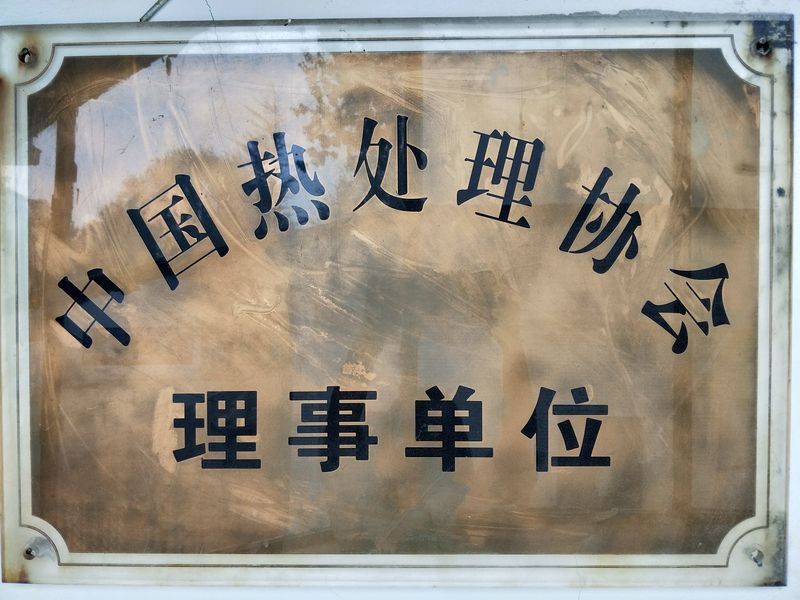 中国热处理协会
理事单位